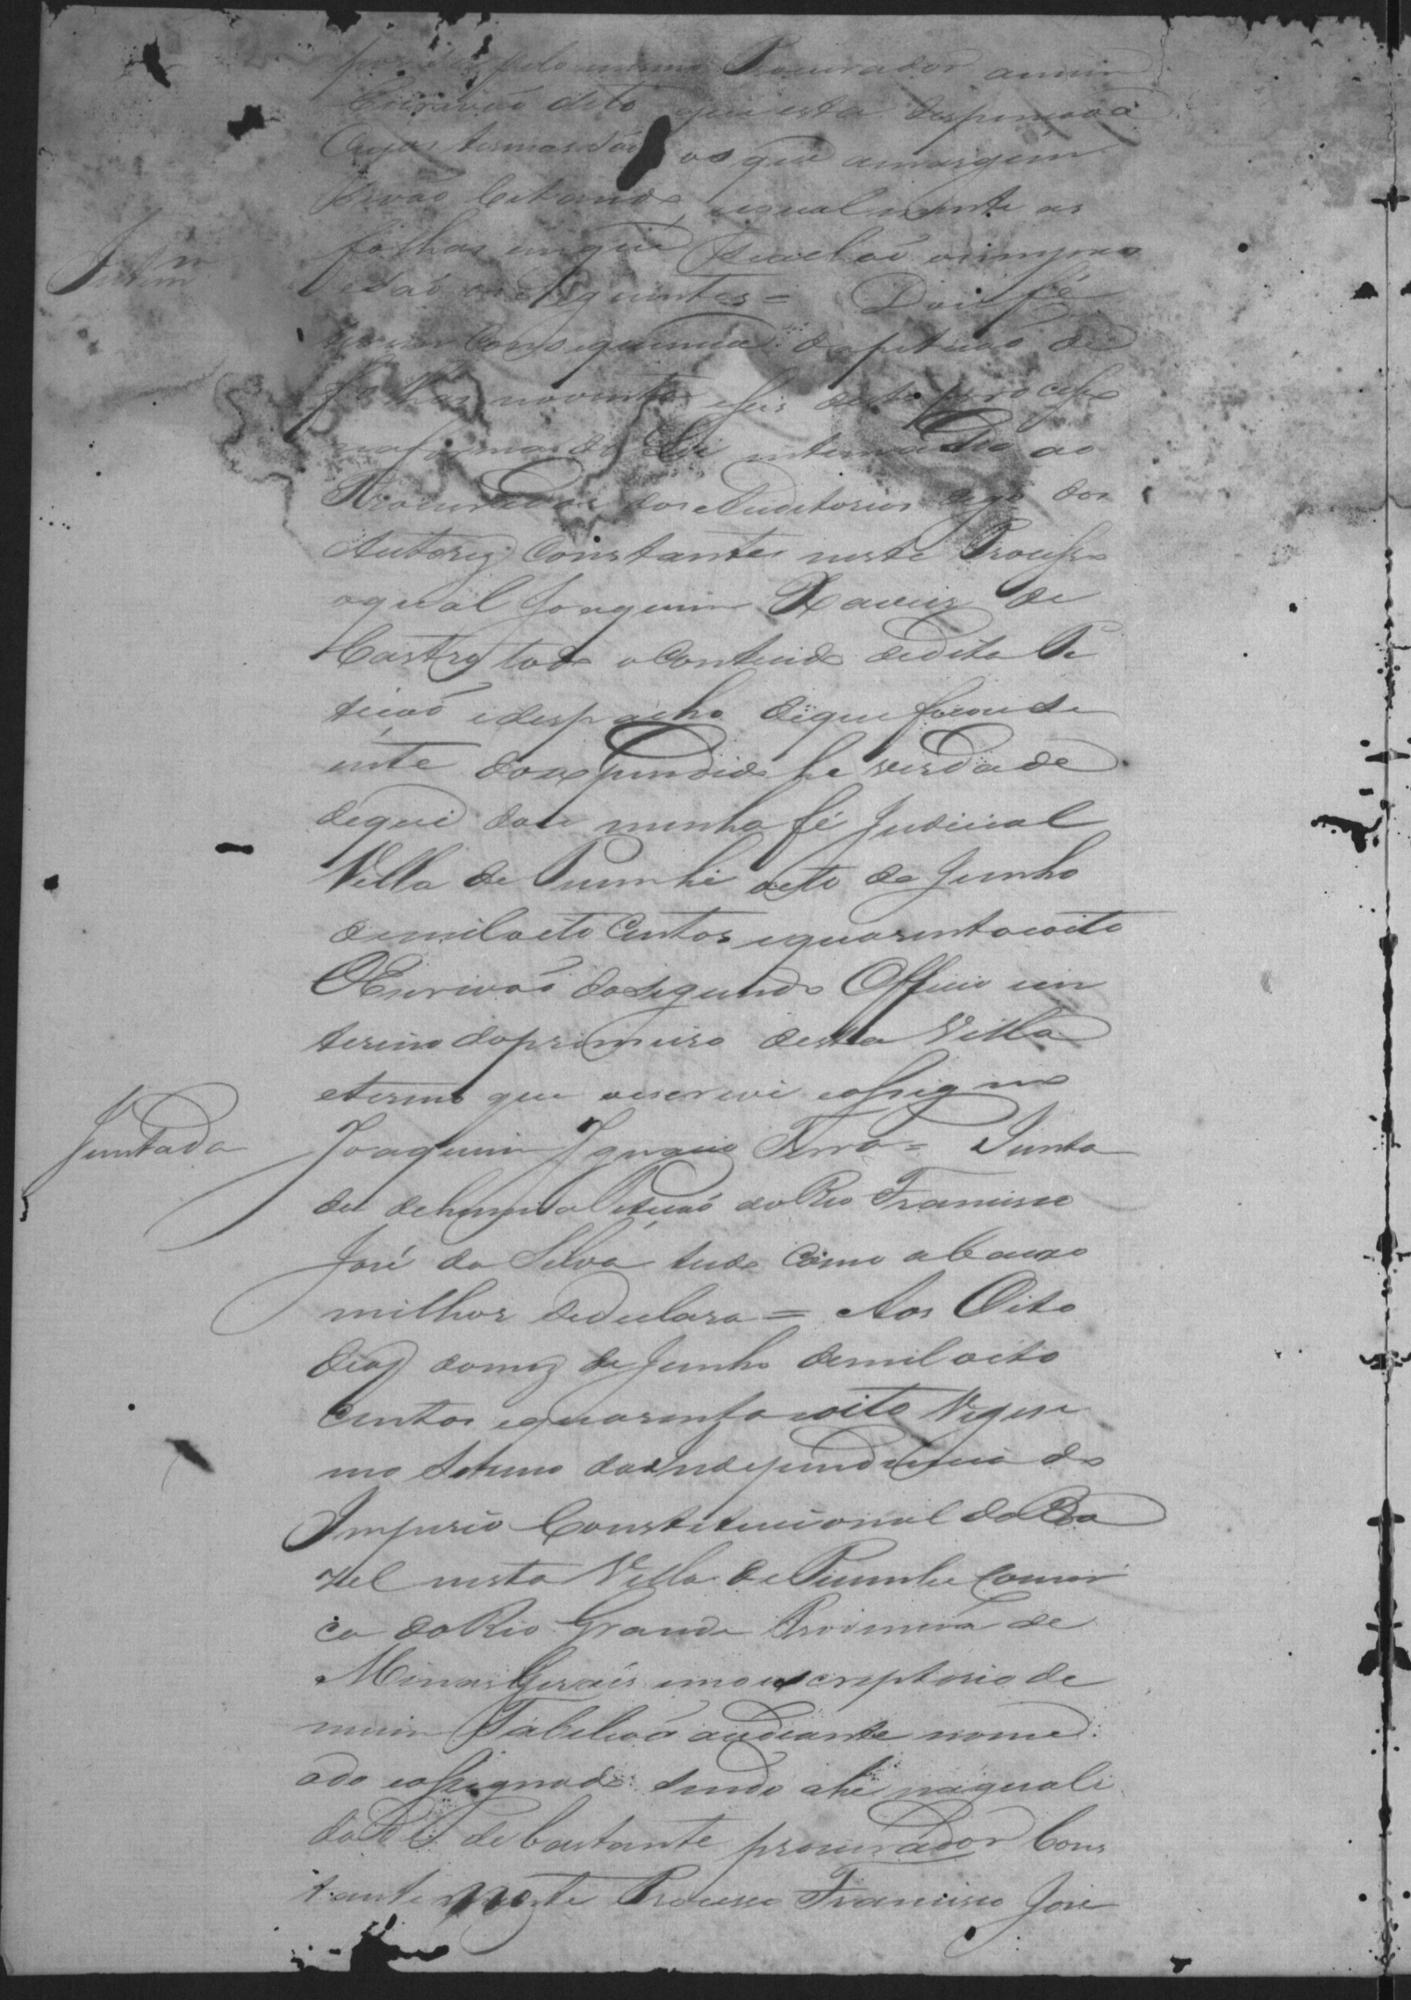 pelo mesmo Procurador a mim
Escrivaõ dito que esta
Cujos termos saõ os que a margem
vaõ Citando igualmente as
folhas em que
saõ os Seguintes = Dou fé
em Consequencia da petiçaõ de
folhas noventa e seis deste processo
na forma da Lei intimado ao
Procurador dos Auditorios digo dos
Autores Constantes neste Processo
oqual Joaquim Xavier de
Castro todo o Conteudo dedita Pe
tiçaõ e despacho deque ficou sci
ente do expendido he verdade
deque dou minha fé Judicial
Villa de Piumhi oito de Junho
demil oito Centos e quarenta e oito
O Escrivaõ do Segundo Officio in
terino do primeiro desta Villa
e termo que o escrevi e assigno
Juntada
Joaquim Ignacio Ferro = Junta
da de huma Petiçaõ do Reo Francisco
José da Silva tudo como abaixo
milhor se declara = Aos Oito
dias do mez de Junho demil oito
Centos e quarenta e oito Vigesi
mo Setimo da Independencia do
Imperio Constitucional do Bra
zil nesta Villa de Piumhi Comar
ca do Rio Grande Provincia de
Minas Gerais em o escriptorio de
mim Tabeliaõ audiante nome
ado e assignado sendo ahi na quali
dade de bastante procurador Cons
tante neste Processo Francisco José